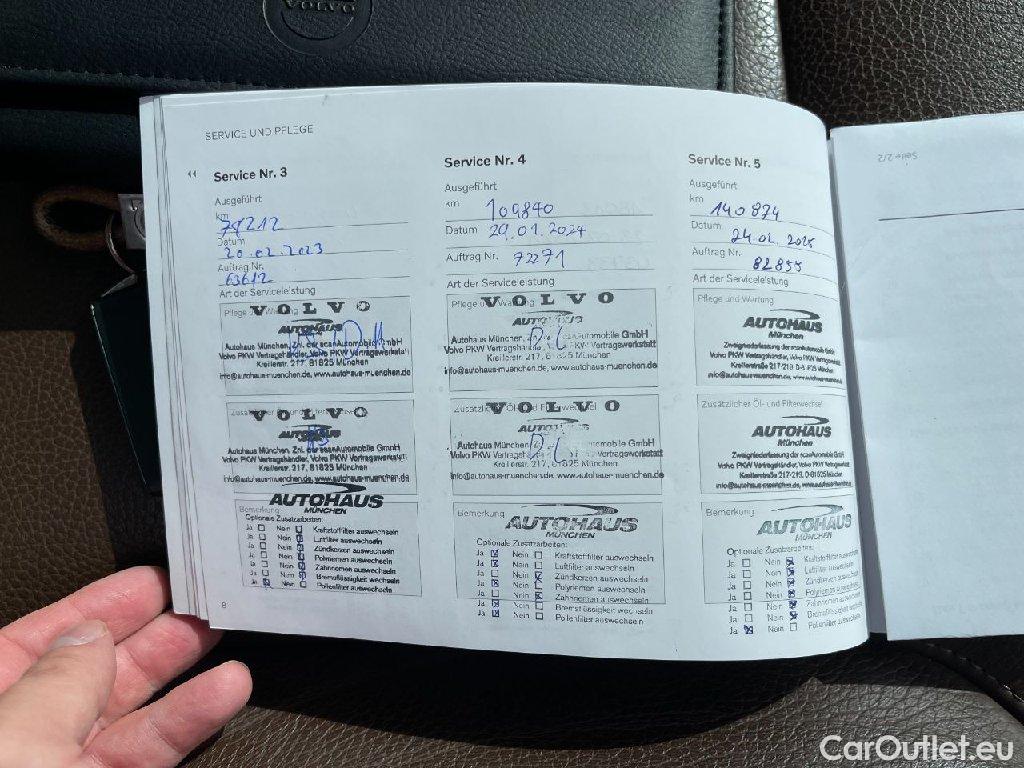 SERVICE UND PFLEGE
Service Nr. 3
Ausgeführt
km
Datum 20.02.2023
Auftrag Nr. 63612
Art der Serviceleistung
VOLVO
AUTOHAUS
Autohaus München, Znl. der scanAutomobile GmbH
Volvo PKW Vertragshändler, Volvo PKW Vertragswerkstatt
Kreillerstr. 217, 81825 München
info@autohaus-muenchen.de, www.autohaus-muenchen.de
VOLVO
AUTOHAUS
Autohaus München, Znl. der scanAutomobile GmbH
Volvo PKW Vertragshändler, Volvo PKW Vertragswerkstatt
Kreillerstr. 217, 81825 München
info@autohaus-muenchen.de, www.autohaus-muenchen.de
AUTOHAUS
MÜNCHEN
Bemerkung
Optionale Zusatzarbeiten:
Ja Nein Kraftstoffilter auswechseln
Ja Nein Luftfilter auswechseln
Ja Nein Zündkerzen auswechseln
Ja Nein Polyriemen auswechseln
Ja Nein Zahnriemen auswechseln
Ja Nein Bremsflüssigkeit wechseln
Ja Nein Pollenfilter auswechseln
8
Service Nr. 4
Ausgeführt
km 109840
Datum 29.01.2024
Auftrag Nr. 72271
Art der Serviceleistung
VOLVO
Autohaus München,
Automobile GmbH
Volvo PKW Vertragshändler, Volvo PKW Vertragswerkstatt
Kreillerstr. 217, 81825 München
info@autohaus-muenchen.de, www.autohaus-muenchen.de
VOLVO
Autohaus München,
Automobile GmbH
Volvo PKW
Vertragswerkstatt
Kreillerstr. 217, 81825 München
info@autohaus-muenchen.de, www.autohaus-muenchen.de
Bemerkung
AUTOHAUS
MÜNCHEN
Optionale Zusatzarbeiten:
Ja Nein Kraftstoffilter auswechseln
Ja Nein Luftfilter auswechseln
Ja Nein Zündkerzen auswechseln
Ja Nein Polyriemen auswechseln
Ja Nein Zahnriemen auswechseln
Ja Nein Bremsflüssigkeit wechseln
Ja Nein Pollenfilter auswechseln
Service Nr. 5
Ausgeführt
km 140874
Datum
Auftrag Nr. 82855
Art der Serviceleistung
Pflege und Wartung
AUTOHAUS
München
Zweigniederlassung der scanAutomobile GmbH
Volvo PKW Vertragshändler, Volvo PKW Vertragswerkstatt
Kreillerstraße 217-219, D-81825 München
info@autohaus-muenchen.de, www.autohaus-muenchen.de
Zusätzlicher Öl- und Filterwechsel
AUTOHAUS
München
Zweigniederlassung der scanAutomobile GmbH
Volvo PKW Vertragshändler, Volvo PKW Vertragswerkstatt
Kreillerstraße 217-219, D-81825 München
info@autohaus-muenchen.de, www.autohaus-muenchen.de
Bemerkung
AUTOHAUS
MÜNCHEN
Optionale Zusatzarbeiten:
Ja Nein Kraftstoffilter auswechseln
Ja Nein Luftfilter auswechseln
Ja Nein Zündkerzen auswechseln
Ja Nein Polyriemen auswechseln
Ja Nein Zahnriemen auswechseln
Ja Nein Bremsflüssigkeit wechseln
Ja Nein Pollenfilter auswechseln
Seite 2/2
CarOutlet.eu